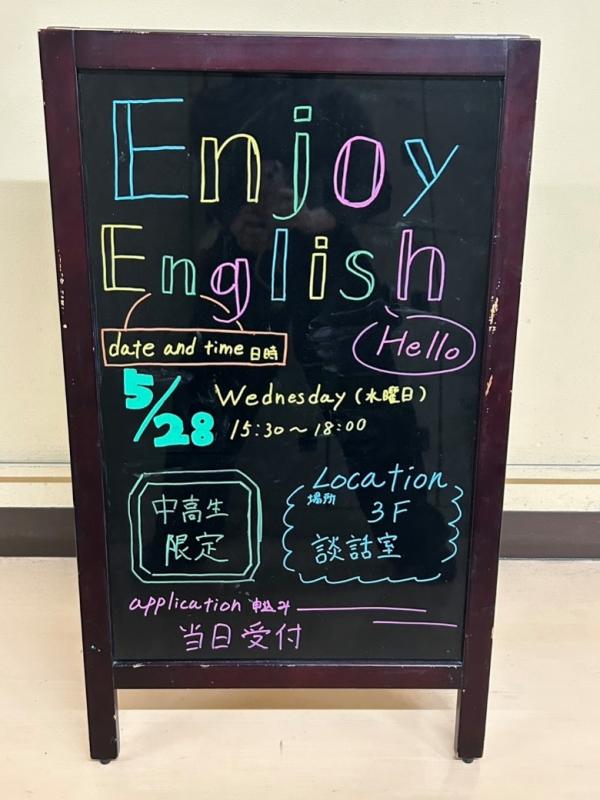 Enjoy
English
date and time 日時
Hello
5/28 Wednesday (水曜日)
15:30～18:00
中高生
限定
Location
場所 3F
談話室
application 申込み
当日受付